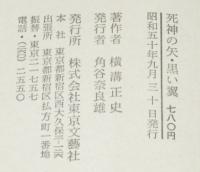 死神の矢・黒い翼 七八〇円
昭和五十年九月三十日発行
著作者 横溝正史
発行者 角谷奈良雄
発行所 株式会社東京文藝社
本社 東京都新宿区西大久保三ー三六
出張所 東京都新宿区払方町一番地
振替・東京二一七五七
電話・(260)二五五〇